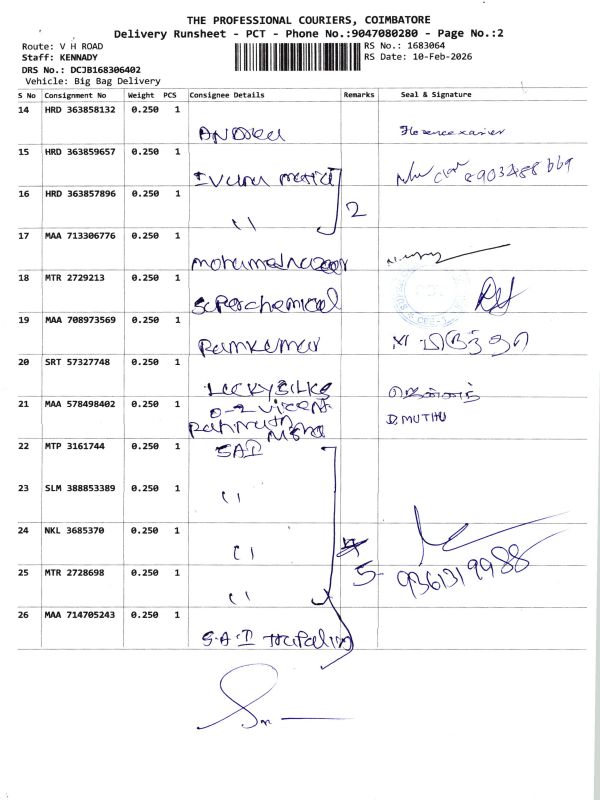 THE PROFESSIONAL COURIERS, COIMBATORE
Delivery Runsheet - PCT - Phone No.:9047080280 - Page No.:2
Route: V H ROAD
RS No.: 1683064
Staff: KENNADY
RS Date: 10-Feb-2026
DRS No.: DCJB168306402
Vehicle: Big Bag Delivery
S No Consignment No Weight PCS Consignee Details Remarks Seal & Signature
14 HRD 363858132 0.250 1
Florence xavier
15 HRD 363859657 0.250 1
16 HRD 363857896 0.250 1
2
17 MAA 713306776 0.250 1
18 MTR 2729213 0.250 1
Superchemical
19 MAA 708973569 0.250 1
Ramkumar
20 SRT 57327748 0.250 1
Lucky Silks
21 MAA 578498402 0.250 1
D. MUTHU
22 MTP 3161744 0.250 1
SAI
23 SLM 388853389 0.250 1
24 NKL 3685370 0.250 1
25 MTR 2728698 0.250 1
5 9361319988
26 MAA 714705243 0.250 1
S.A.I